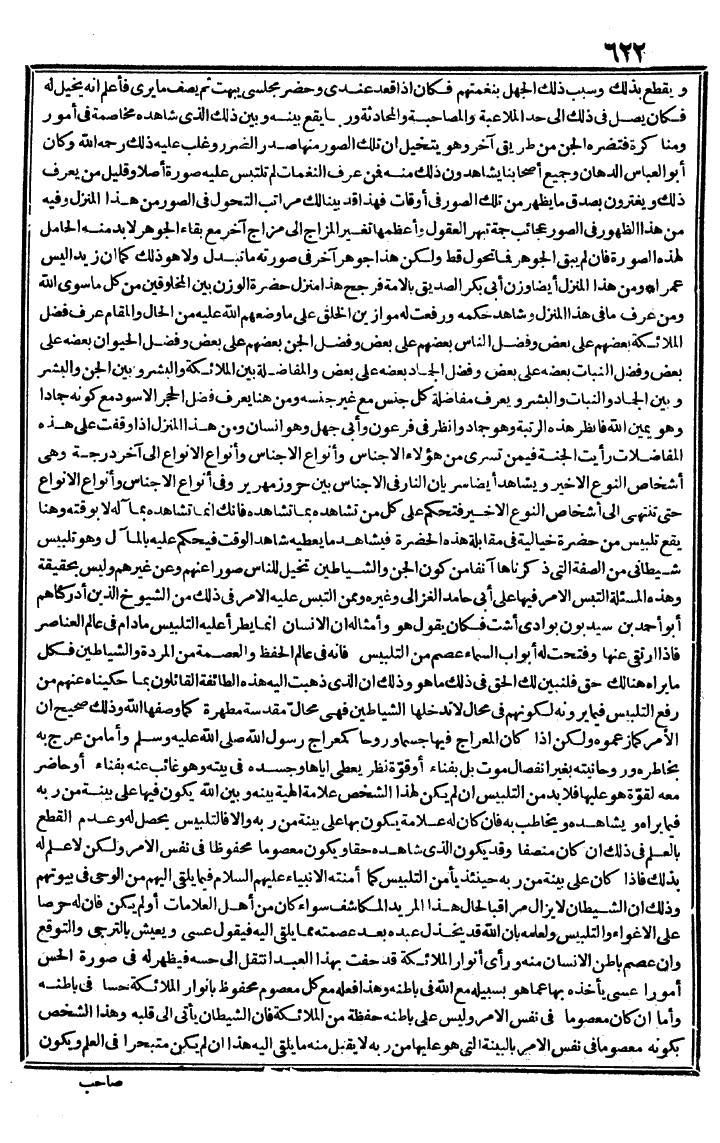 ٦٢٢
و يقطع بذلك وسبب ذلك الجهل بنغمتهم فكان اذا قعد عندى وحضر مجلسى يبهت ثم يصف ما يرى فأعلم انه يخيل له
فكان يصل فى ذلك الى حد الملاعبة والمصاحبة والمحادثة ور بما يقع بينه وبين ذلك الذى شاهده مخاصمة فى أمور
ومنا كرة فتضره الجن من طريق آخر وهو يتخيل ان تلك الصور منها صدر الضرر وغلب عليه ذلك رحمه الله وكان
أبو العباس الدهان وجميع أصحابنا يشاهدون ذلك منه فمن عرف النغمات لم تلتبس عليه صورة أصلا وقليل من يعرف
ذلك و يغترون بصدق ما يظهر من تلك الصور فى أوقات فهذا قد بينا لك مراتب التحول فى الصور من هذا المنزل وفيه
من هذا الظهور فى الصور عجائب جمة تبهر العقول وأعظمها تغيير المزاج الى مزاج آخر مع بقاء الجوهر لا بد منه الحامل
لهذه الصورة فان لم يبق الجوهر فما تحول قط ولكن هذا جوهر آخر فى صورته ما تبدل ولا هو ذلك كما ان زيدا ليس
عمرا* ومن هذا المنزل أيضا وزن أبى بكر الصديق بالامة فرجح هذا منزل حضرة الوزن بين المخلوقين من كل ما سوى الله
ومن عرف ما فى هذا المنزل وشاهد حكمه ورفعت له موازين الخلق على ما وضعهم الله عليه من الحال والمقام عرف فضل
الملائكة بعضهم على بعض وفضل الناس بعضهم على بعض وفضل الجن بعضهم على بعض وفضل الحيوان بعضه على
بعض وفضل النبات بعضه على بعض وفضل الجماد بعضه على بعض والمفاضلة بين الملائكة والبشر و بين الجن والبشر
و بين الجماد والنبات والبشر و يعرف مفاضلة كل جنس مع غير جنسه ومن هنا يعرف فضل الحجر الاسود مع كونه جمادا
وهو يمين الله فانظر هذه الرتبة وهو جماد وانظر فى فرعون وأبى جهل وهو انسان ومن هذا المنزل اذا وقفت على هذه
المفاضلات رأيت الجنة فيمن تسرى من هؤلاء الاجناس وأنواع الاجناس وأنواع الانواع الى آخر درجة وهى
أشخاص النوع الاخير و يشاهد أيضا سريان النار فى الاجناس بين حرور وزمهرير وفى أنواع الاجناس وأنواع الانواع
حتى تنتهى الى أشخاص النوع الاخير فتحكم على كل من تشاهده بما تشاهده فانك انما تشاهده بما آله لا بوقته وهنا
يقع تلبيس من حضرة خيالية فى مقابلة هذه الحضرة فيشاهد ما يعطيه شاهد الوقت فيحكم عليه بالمآل وهو تلبيس
شيطانى من الصفة التى ذكرناها آنفا من كون الجن والشياطين تخيل للناس صورا عنهم وعن غيرهم وليس بحقيقة
وهذه المسئلة التبس الامر فيها على أبى حامد الغزالى وغيره وممن التبس عليه الامر فى ذلك من الشيوخ الذين أدركناهم
أبو أحمد بن سيد بون بوادى أشت فكان يقول هو وأمثاله ان الانسان انما يطرأ عليه التلبيس ما دام فى عالم العناصر
فاذا ارتقى عنها وفتحت له أبواب السماء عصم من التلبيس فانه فى عالم الحفظ والعصمة من المردة والشياطين فكل
ما يراه هنالك حق فلنبين لك الحق فى ذلك ما هو وذلك ان الذى ذهبت اليه هذه الطائفة القائلون بما حكيناه عنهم من
رفع التلبيس فيما يرونه لكونهم فى محال لا تدخلها الشياطين فهى محال مقدسة مطهرة كما وصفها الله وذلك صحيح ان
الأمر كما زعموه ولكن اذا كان المعراج فيها جسما وروحا كمعراج رسول الله صلى الله عليه وسلم وأما من عرج به
بخاطره وروحانيته بغير انفصال موت بل بفناء أو قوة نظر يعطى اياها وجسده فى بيته وهو غائب عنه بفناء أو حاضر
معه لقوة هو عليها فلا بد من التلبيس ان لم يكن لهذا الشخص علامة الهية بينه و بين الله يكون فيها على بينة من ربه
فيما يراه و يشاهده و يخاطب به فان كان له علامة يكون بها على بينة من ربه والا فالتلبيس يحصل له وعدم القطع
بالعلم فى ذلك ان كان منصفا وقد يكون الذى شاهده حقا و يكون معصوما محفوظا فى نفس الامر ولكن لا علم له
بذلك فاذا كان على بينة من ربه حينئذ يأمن التلبيس كما أمنته الانبياء عليهم السلام فيما يلقى اليهم من الوحى فى بيوتهم
وذلك ان الشيطان لا يزال مراقبا لحال هذا المريد المكاشف سواء كان من أهل العلامات أو لم يكن فان له حرصا
على الاغواء والتلبيس ولعلمه بان الله قد يخذل عبده بعد عصمته مما يلقى اليه فيقول عسى و يعيش بالترجى والتوقع
وان عصم باطن الانسان منه ورأى أنوار الملائكة قد حفت بهذا العبد انتقل الى حسه فيظهر له فى صورة الحس
أمورا عسى يأخذه بها عما هو بسبيله مع الله فى باطنه وهذا فعله مع كل معصوم محفوظ بانوار الملائكة حسا فى باطنه
وأما ان كان معصوما فى نفس الامر وليس على باطنه حفظة من الملائكة فان الشيطان يأتى الى قلبه وهذا الشخص
بكونه معصوما فى نفس الامر بالبينة التى هو عليها من ربه لا يقبل منه ما يلقى اليه هذا ان لم يكن متبحرا فى العلم و يكون
صاحب